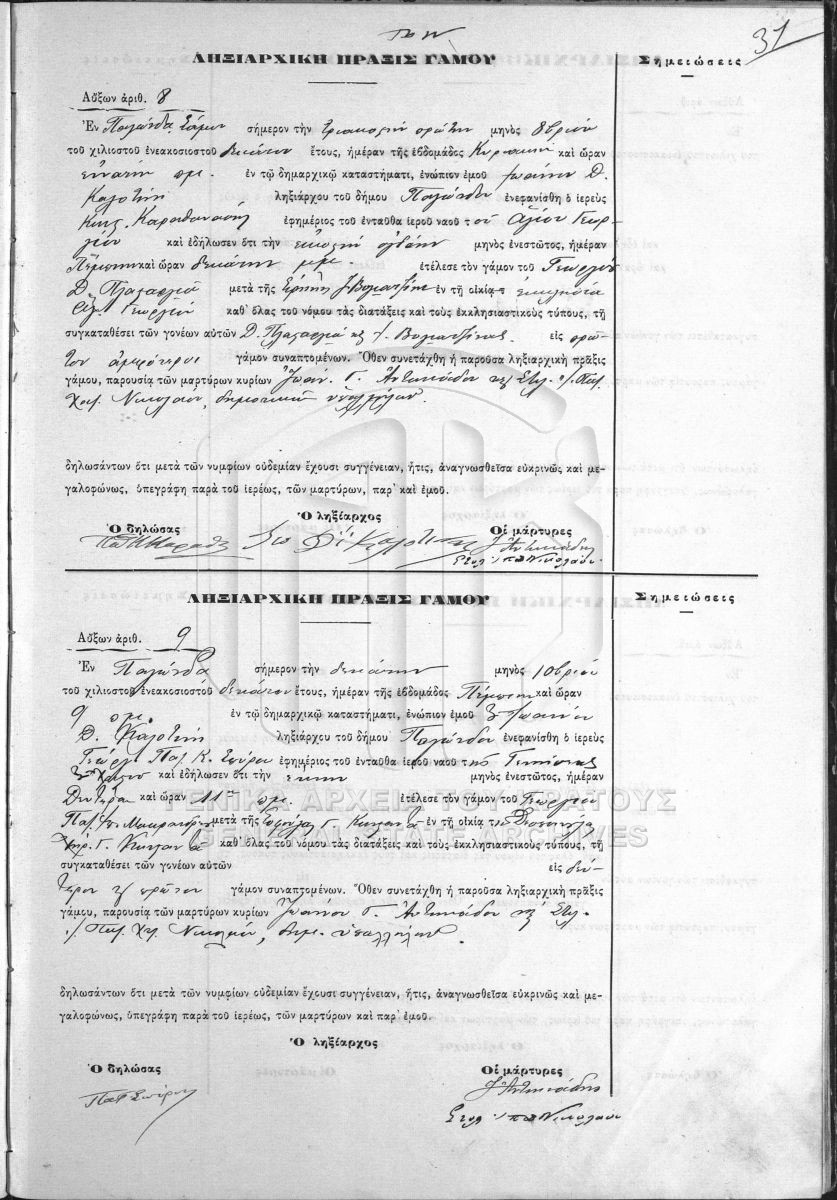 31
ΛΗΞΙΑΡΧΙΚΗ ΠΡΑΞΙΣ ΓΑΜΟΥ
Σημειώσεις
Αὔξων ἀριθ. 8
Ἐν Παγώνδα Σάμου σήμερον τὴν τριακοστὴν πρώτην μηνὸς 8βρίου
τοῦ χιλιοστοῦ ἐνεακοσιοστοῦ δεκάτου ἔτους, ἡμέραν τῆς ἑβδομάδος Κυριακὴν καὶ ὥραν
ἐνάτην πμ. ἐν τῷ δημαρχικῷ καταστήματι, ἐνώπιον ἐμοῦ Ἰωάννου Δ.
Καλοτίνη ληξιάρχου τοῦ δήμου Παγώνδου ἐνεφανίσθη ὁ ἱερεὺς
Κων. Καραθανάσης ἐφημέριος τοῦ ἐνταῦθα ἱεροῦ ναοῦ τοῦ Ἁγίου Γεωρ-
γίου καὶ ἐδήλωσεν ὅτι τὴν εἰκοστὴν ὀγδόην μηνὸς ἐνεστῶτος, ἡμέραν
Πέμπτην καὶ ὥραν δεκάτην μμ. ἐτέλεσε τὸν γάμον τοῦ Γεωργίου
Δ. μετὰ τῆς Εἰρήνης Ι. ἐν τῇ οἰκίᾳ ἐκκλησίᾳ
Ἁγ. Γεωργίου καθ' ὅλας τοῦ νόμου τὰς διατάξεις καὶ τοὺς ἐκκλησιαστικοὺς τύπους, τῇ
συγκαταθέσει τῶν γονέων αὐτῶν Δ. εἰς πρῶ-
τον ἀμφότεροι γάμον συναπτομένων. Ὅθεν συνετάχθη ἡ παροῦσα ληξιαρχικὴ πρᾶξις
γάμου, παρουσίᾳ τῶν μαρτύρων κυρίων Ἰωάν. Γ. Ἀντωνιάδου καὶ Στυλ. Παπ.
Χατ. Νικολάου, δημοτικῶν ὑπαλλήλων.
δηλωσάντων ὅτι μετὰ τῶν νυμφίων οὐδεμίαν ἔχουσι συγγένειαν, ἥτις, ἀναγνωσθεῖσα εὐκρινῶς καὶ με-
γαλοφώνως, ὑπεγράφη παρὰ τοῦ ἱερέως, τῶν μαρτύρων, παρ' καὶ ἐμοῦ.
Ὁ ληξίαρχος
Ὁ δηλώσας
Οἱ μάρτυρες
Ι. Ἀντωνιάδης
ΛΗΞΙΑΡΧΙΚΗ ΠΡΑΞΙΣ ΓΑΜΟΥ
Σημειώσεις
Αὔξων ἀριθ. 9
Ἐν Παγώνδα σήμερον τὴν δεκάτην μηνὸς 10βρίου
τοῦ χιλιοστοῦ ἐνεακοσιοστοῦ δεκάτου ἔτους, ἡμέραν τῆς ἑβδομάδος Πέμπτην καὶ ὥραν
9 πμ. ἐν τῷ δημαρχικῷ καταστήματι, ἐνώπιον ἐμοῦ Ἰωάννου
Δ. Καλοτίνη ληξιάρχου τοῦ δήμου Παγώνδου ἐνεφανίσθη ὁ ἱερεὺς
Γεώργ. Παπ. Κ. Σπύρου ἐφημέριος τοῦ ἐνταῦθα ἱεροῦ ναοῦ τῆς Γεννήσεως
Χριστοῦ καὶ ἐδήλωσεν ὅτι τὴν μηνὸς ἐνεστῶτος, ἡμέραν
Δευτέραν καὶ ὥραν 11ην πμ. ἐτέλεσε τὸν γάμον τοῦ Γεωργίου
Παπ. μετὰ τῆς Γ. ἐν τῇ οἰκίᾳ
Γ. καθ' ὅλας τοῦ νόμου τὰς διατάξεις καὶ τοὺς ἐκκλησιαστικοὺς τύπους, τῇ
συγκαταθέσει τῶν γονέων αὐτῶν εἰς δεύ-
τερον καὶ πρῶτον γάμον συναπτομένων. Ὅθεν συνετάχθη ἡ παροῦσα ληξιαρχικὴ πρᾶξις
γάμου, παρουσίᾳ τῶν μαρτύρων κυρίων Ἰωάννου Γ. Ἀντωνιάδου καὶ Στυλ.
Παπ. Χχ. Νικολάου, δημ. ὑπαλλήλων.
δηλωσάντων ὅτι μετὰ τῶν νυμφίων οὐδεμίαν ἔχουσι συγγένειαν, ἥτις, ἀναγνωσθεῖσα εὐκρινῶς καὶ με-
γαλοφώνως, ὑπεγράφη παρὰ τοῦ ἱερέως, τῶν μαρτύρων καὶ παρ' ἐμοῦ.
Ὁ ληξίαρχος
Ὁ δηλώσας
Οἱ μάρτυρες
Ι. Ἀντωνιάδης
ΓΕΝΙΚΑ ΑΡΧΕΙΑ ΤΟΥ ΚΡΑΤΟΥΣ
GENERAL STATE ARCHIVES